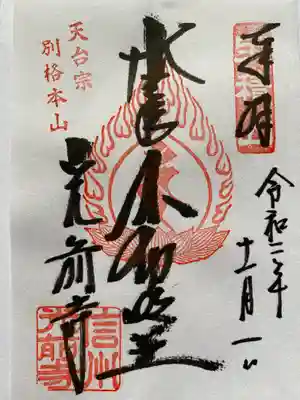 奉拝
令和二年
十一月一日
本尊不動明王
天台宗
別格本山
光前寺
信州
光前寺